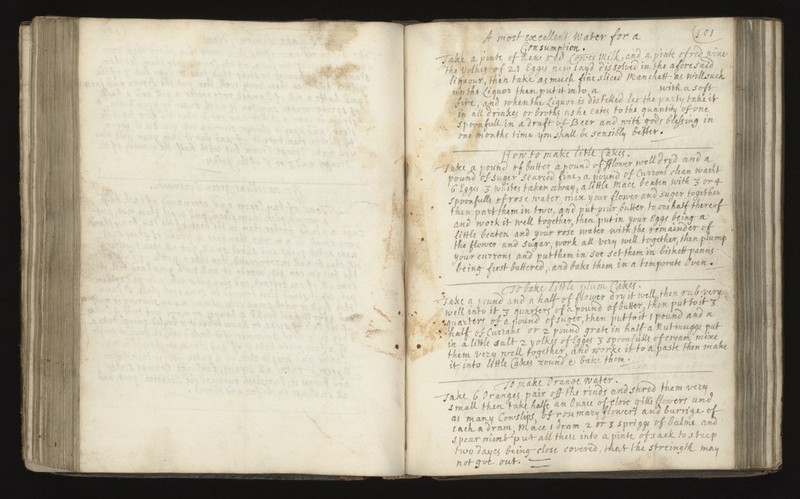 A most excellent Water for a (101
Consumption.
Take a pinte of new red Cowes Milk, and a pinte of red wine
the yolkes of 21 Eggs new layd dissolved in the aforesaid
liquour, then take as much fine sliced Manchett as will suck
up the Liquor then put it into a with a soft
fire, and when the Liquor is distilled let the party take it
in all drinkes or broths as he eates to the quantity of one
spoonfull in a druft of Beer and with gods blessing in
one months time you shall be sensibly better.
How to make litle Cakes.
Take a pound of butter a pound of flower well dryd and a
pound of Suger searced fine, a pound of Currons clean washt
6 Eggs 3 whites taken away, a little Mace beaten with 3 or 4
spoonfulls of rose water, mix your flower and suger together
then part them in two, and put your butter to one half thereof
and work it well together, then put in your Eggs being a
little beaten and your rose water with the remainder of
the flower and Sugar, work all very well together, then plump
your currons and put them in soe set them in biskett panns
being first buttered, and bake them in a temporate Oven.
To bake little plum Cakes.
Take a pound and a half of flower dry it well, then rub very
well into it 3 quarters of a pound of butter, then put to it 3
quarters of a pound of Suger, then put to it 1 pound and a
half of Currans or 2 pound grate in half a Nutmugge put
in a little salt 2 yolkes of Eggs 3 spoonfulls of cream mixe
them very well together, and worke it to a paste then make
it into little Cakes round & bake them.
To make Orange Water.
Take 6 Oranges pair off the rinds and shred them very
small then take halfe an Ounce of Clove gilli flowers and
as many Cowslips, of rosemary flowers and burrige of
each a dram, Mace 1 dram 2 or 3 spriggs of balme and
spearmint put all these into a pinte of sack to steep
two dayes being close covered, that the strength may
not goe out.